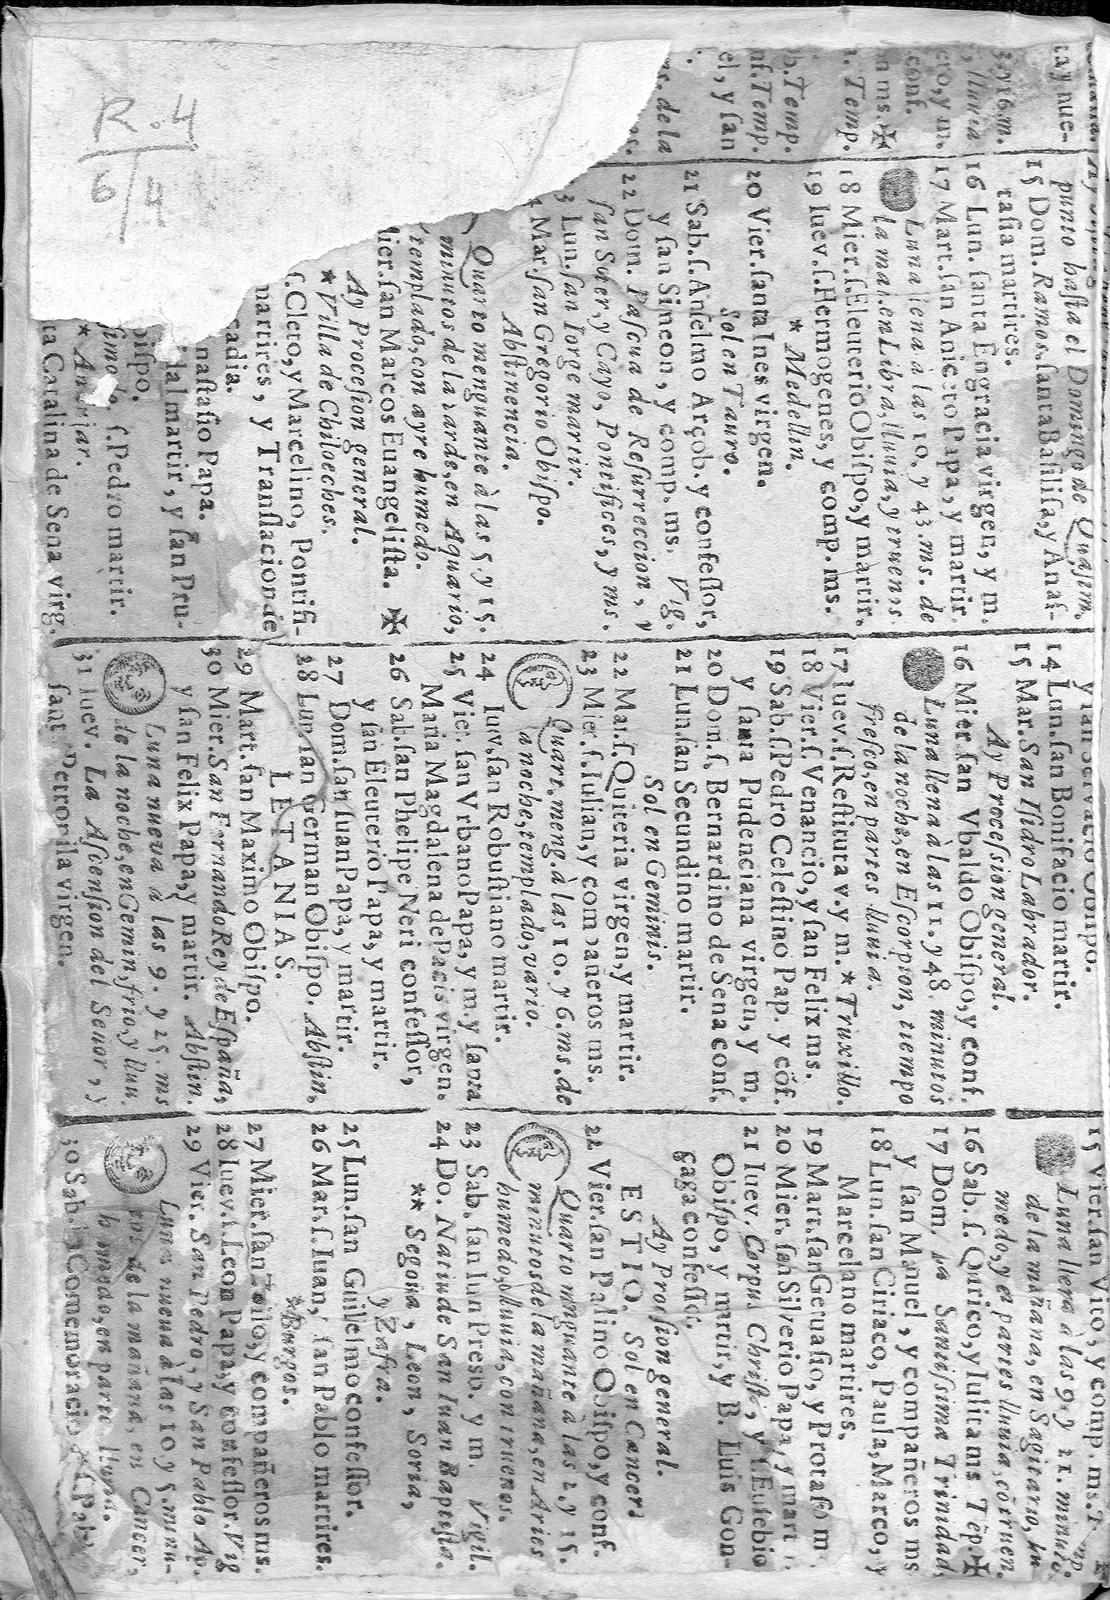 R. 4
6/4
tay nue-
3. y 16. m.
lluvia
ero, y m.
conf.
on ms. ✠
Temp.
b. Temp.
nf. Temp.
el, y ſan
ms. de la
punto haſta el Domingo de Quaſim.
15 Dom. Ramos. ſanta Baſiliſa, y Anaſ-
taſia martires.
16 Lun. ſanta Engracia virgen, y m.
17 Mart. ſan Aniceto Papa, y martir.
Luna llena à las 10. y 43. ms. de
la mañ. en Libra, lluuia, y truenos
18 Mier. ſ. Eleuterio Obiſpo, y martir.
19 Iuev. ſ. Hermogenes, y comp. ms.
* Medellin.
20 Vier. ſanta Ines virgen.
Sol en Tauro.
21 Sab. ſ. Anſelmo Arçob. y confeſſor,
y ſan Simeon, y comp. ms. Vig.
22 Dom. Paſcua de Reſurreccion, y
ſan Soter, y Cayo, Pontifices, y ms.
3 Lun. ſan Iorge martir.
Mar. ſan Gregorio Obiſpo.
Abſtinencia.
Quarto menguante à las 5. y 15.
minutos de la tarde, en Aquario,
templado, con ayre humedo.
ier. ſan Marcos Euangeliſta. ✠
Ay Proceſion general.
* Villa de Chiloeches.
ſ. Cleto, y Marcelino, Pontifi-
martires, y Tranſlacion de
cadia.
naſtaſio Papa.
dal martir, y ſan Pru-
biſpo.
ſimo. ſ. Pedro martir.
ta Catalina de Sena virg.
y ſan Servacio Obiſpo.
14 Lun. ſan Bonifacio martir.
15 Mar. San Iſidro Labrador.
Ay Proceſsion general.
16 Mier. ſan Vbaldo Obiſpo, y conf.
Luna llena à las 11. y 48. minutos
de la noche, en Eſcorpion, tiempo
freſco, en partes lluuia.
17 Iuev. ſ. Reſtituta v. y m. * Truxillo.
18 Vier. ſ. Venancio, y ſan Felix ms.
19 Sab. ſ. Pedro Celeſtino Pap. y cõf.
y ſanta Pudenciana virgen, y m.
20 Dom. ſ. Bernardino de Sena conf.
21 Lun. ſan Secundino martir.
Sol en Geminis.
22 Mar. ſ. Quiteria virgen, y martir.
23 Mier. ſ. Iulian, y compañeros ms.
Quart. meng. à las 10. y 6. ms. de
la noche, templado, vario.
24 Iuev. ſan Robuſtiano martir.
25 Vier. ſan Vrbano Papa, y m. y ſanta
Maria Magdalena de Pacis virgen.
26 Sab. ſan Phelipe Neri confeſſor,
y ſan Eleuterio Papa, y martir.
27 Dom. ſan Iuan Papa, y martir.
28 Lun. ſan German Obiſpo. Abſtin.
LETANIAS.
29 Mart. ſan Maximo Obiſpo.
30 Mier. San Fernando Rey de Eſpaña,
y ſan Felix Papa, y martir. Abſtin.
Luna nueva à las 9. y 25. ms
de la noche, en Gemin. frio, y lluu.
31 Iuev. La Aſcenſion del Señor, y
ſant Petronila virgen.
15 Vier. ſan Vito, y comp. ms. T
Luna llena à las 9. y 21. minut.
de la mañana, en Sagitario, hu
medo, y en partes lluuia, cõ truen.
16 Sab. ſ. Quirico, y Iulita ms Tẽp ✠
17 Dom. La Santiſsima Trinidad,
y ſan Manuel, y compañeros ms
18 Lun. ſan Ciriaco, Paula, Marco, y
Marcelano martires.
19 Mart. ſan Geruaſio, y Protaſio m
20 Mier. ſan Silverio Papa, y mart
21 Iuev. Corpus Chriſti, y ſ. Euſebio
Obiſpo, y martir, y B. Luis Gon-
gaga confeſſ.
Ay Proceſion general.
ESTIO. Sol en Cancer.
22 Vier. ſan Paulino Obiſpo, y conf.
Quarto menguante à las 2. y 15.
minutos de la mañana, en Aries
humedo, lluuia, con truenos.
23 Sab. ſan Iuan Presb. y m. Vigil.
24 Do. Nativ. de San Iuan Baptiſta.
** Segovia, Leon, Soria,
y Zafra.
25 Lun. ſan Guillelmo confeſſor.
26 Mar. ſ. Iuan, y ſan Pablo martires.
* Burgos.
27 Mier. ſan Zoilo, y compañeros ms.
28 Iuev. ſ. Leon Papa, y confeſſor. Vig
29 Vier. San Pedro, y San Pablo Ap.
Luna nueua à las 10 y 5. minu-
tos de la mañana, en Cancer,
humedo, en parte lluuia.
30 Sab. Comemoracio